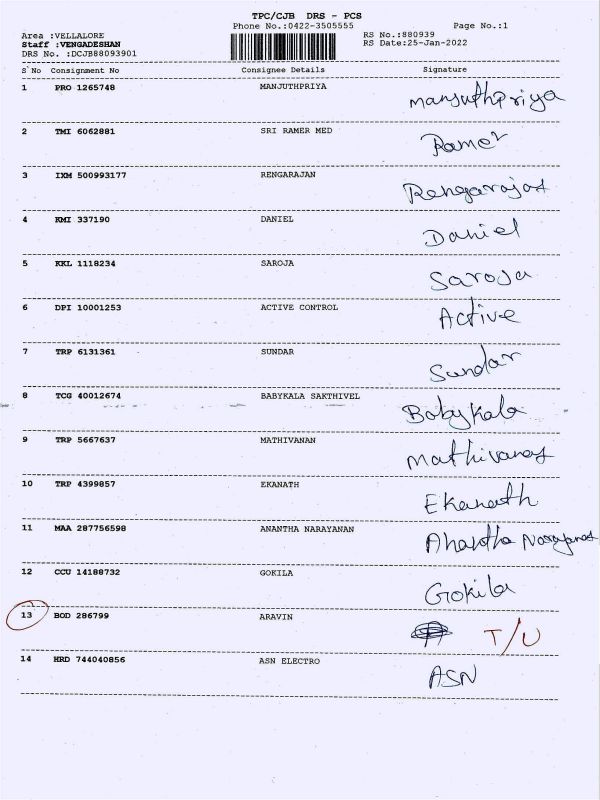 TPC/CJB DRS - PCS
Phone No.:0422-3505555 Page No.:1
Area :VELLALORE RS No.:880939
Staff :VENGADESHAN RS Date:25-Jan-2022
DRS No. :DCJB88093901
S No Consignment No Consignee Details Signature
1 PRO 1265748 MANJUTHPRIYA manjuthpriya
2 TMI 6062881 SRI RAMER MED Ramer
3 IXM 500993177 RENGARAJAN Rengarajan
4 KMI 337190 DANIEL Daniel
5 KKL 1118234 SAROJA Saroja
6 DPI 10001253 ACTIVE CONTROL Active
7 TRP 6131361 SUNDAR Sundar
8 TCG 40012674 BABYKALA SAKTHIVEL Babykala
9 TRP 5667637 MATHIVANAN Mathivanan
10 TRP 4399857 EKANATH Ekanath
11 MAA 287756598 ANANTHA NARAYANAN Anantha Narayanan
12 CCU 14188732 GOKILA Gokila
13 BOD 286799 ARAVIN T/U
14 HRD 744040856 ASN ELECTRO ASN